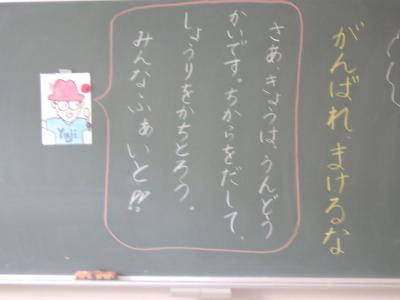 がんばれ、まけるな
さあ、きょうは、うんどう
かいです。ちからをだして、
しょうりをかちとろう。
みんなふぁいと!!
Yuji